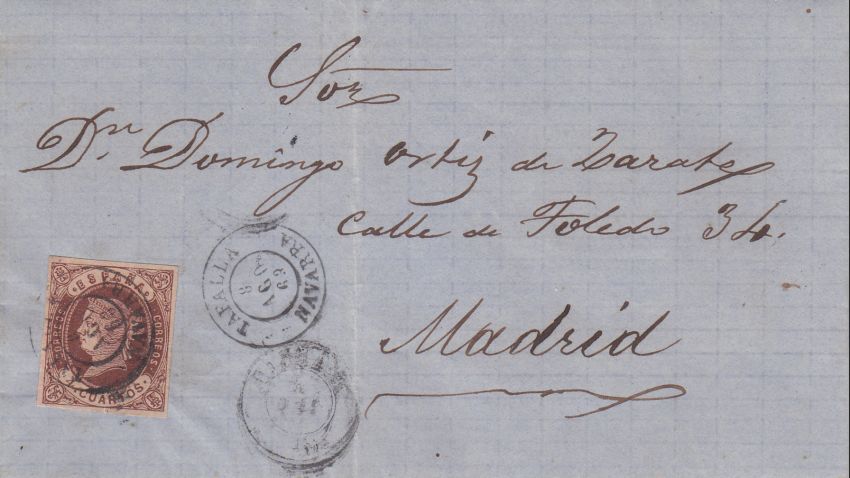 Sor
Dn. Domingo Ortiz de Zarate
Calle de Toledo 34.
Madrid
TAFALLA
NAVARRA
8
AGO
62
ESPAÑA
CORREOS
CUARTOS